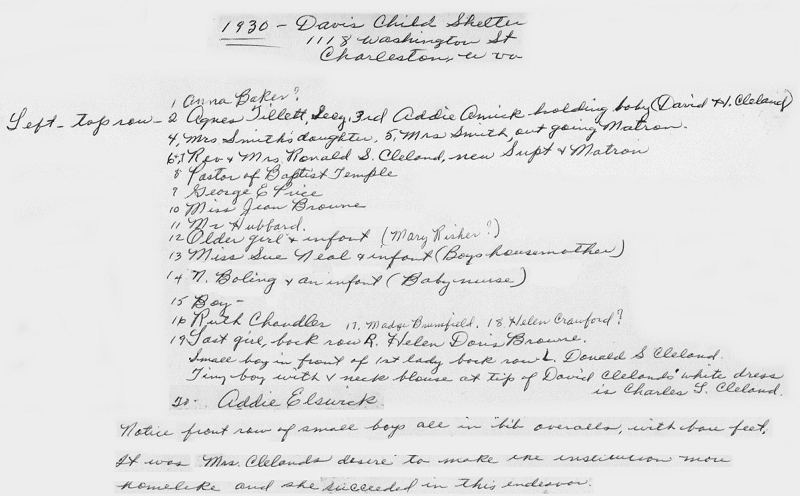 1930 - Davis Child Shelter
1118 Washington St
Charleston, W va
1 Anna Baker?
Left - top row - 2 Agnes Tillett, Secy, 3rd Addie Amick holding baby (David H. Cleland)
4, Mrs Smith's daughter, 5, Mrs Smith, out going Matron.
6+7 Rev & Mrs Ronald S. Cleland, new Supt & Matron
8 Pastor of Baptist Temple
9 George E Price
10 Miss Jean Browne
11 Mr Hubbard.
12 Older girl & infant (Mary Risher?)
13 Miss Sue Neal & infant (Boys housemother)
14 N. Boling & an infant (Baby nurse)
15 Boy -
16 Ruth Chandler 17. Madge Brumfield. 18. Helen Crawford?
19 Last girl, back row R. Helen Doris Browne.
Small boy in front of 1st lady back row L. Donald S Cleland.
Tiny boy with V neck blouse at tip of David Clelands' white dress
is Charles T. Cleland.
20- Addie Elswick
Notice front row of small boys all in bib overalls, with bare feet.
It was Mrs. Clelands desire to make the institution more
homelike and she succeeded in this endeavor.